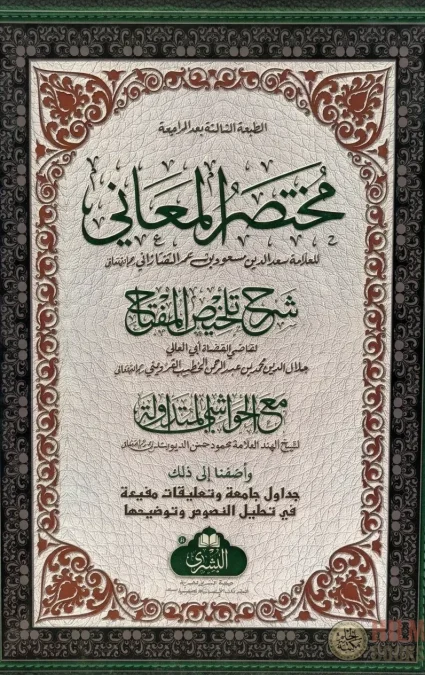 الطبعة الثالثة بعد المراجعة
مُختصرُ المعاني
للعلامة سعد الدين مسعود بن عمر التفتازاني
شرح تلخيص المفتاح
لقاضي القضاة أبي المعالي
جلال الدين محمد بن عبد الرحمن الخطيب القزويني
مع الحواشي المتداولة
لشيخ الهند العلامة محمود حسن الديوبندي
وأضفنا إلى ذلك
جداول جامعة وتعليقات مفيعة
في تحليل النصوص وتوضيحها
البشرى